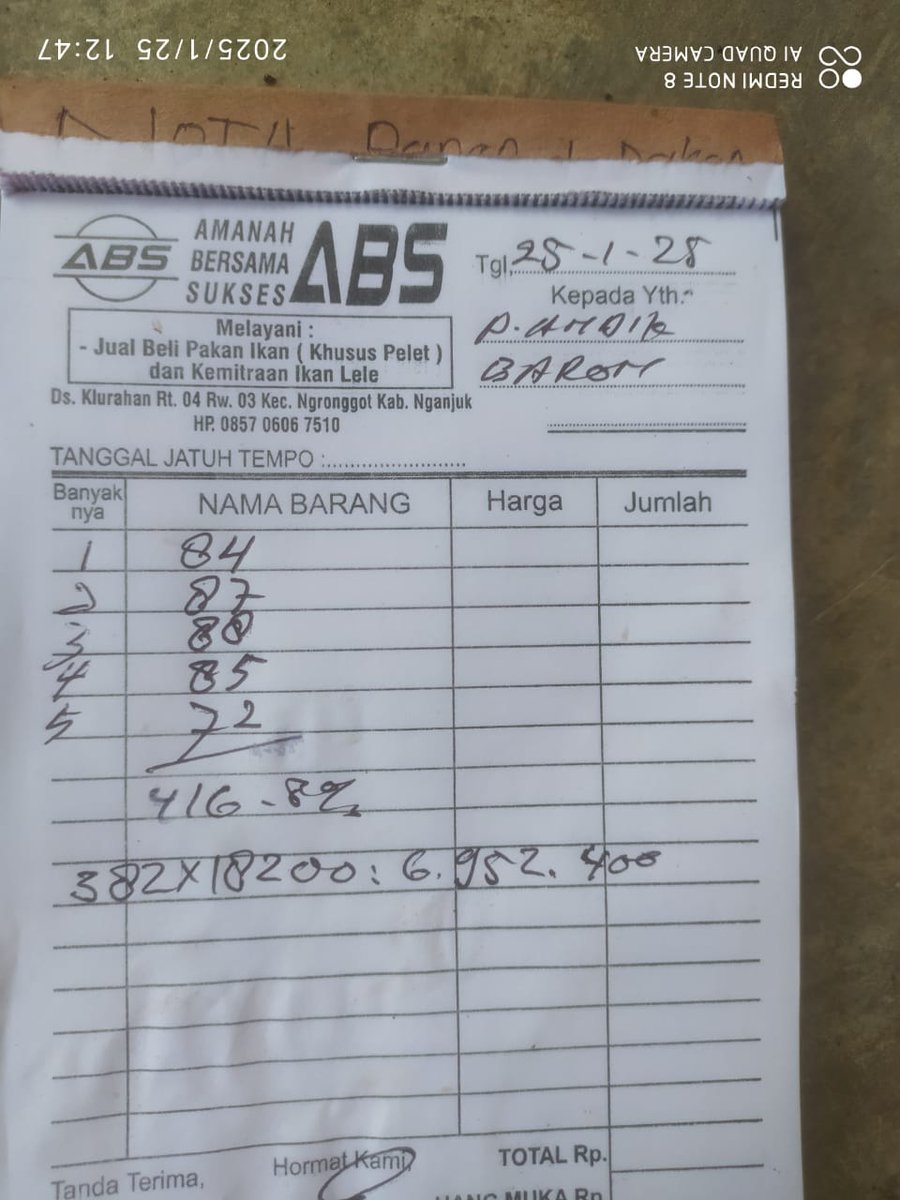 2025/1/25 12:47
REDMI NOTE 8
AI QUAD CAMERA
NOTA Panen
ABS
AMANAH
BERSAMA
SUKSES
ABS
Melayani :
- Jual Beli Pakan Ikan ( Khusus Pelet )
dan Kemitraan Ikan Lele
Ds. Klurahan Rt. 04 Rw. 03 Kec. Ngronggot Kab. Nganjuk
HP. 0857 0606 7510
Tgl, 25-1-25
Kepada Yth.
P. ANDIK
BARON
TANGGAL JATUH TEMPO :
Banyak nya NAMA BARANG Harga Jumlah
1 84
2 87
3 88
4 85
5 72
416 - 8%
382 X 18200 : 6.952.400
Tanda Terima, Hormat Kami, TOTAL Rp.
UANG MUKA Rp